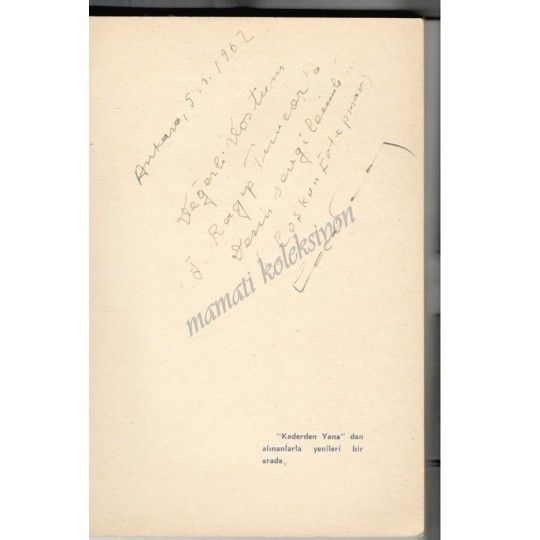 Ankara, 5.1.1962
Değerli Dostum
T. Ragıp Tuncor'a
Derin sevgilerimle..
Coşkun Ertepınar
mamati koleksiyon
"Kaderden Yana" dan
alınanlarla yenileri bir
arada,